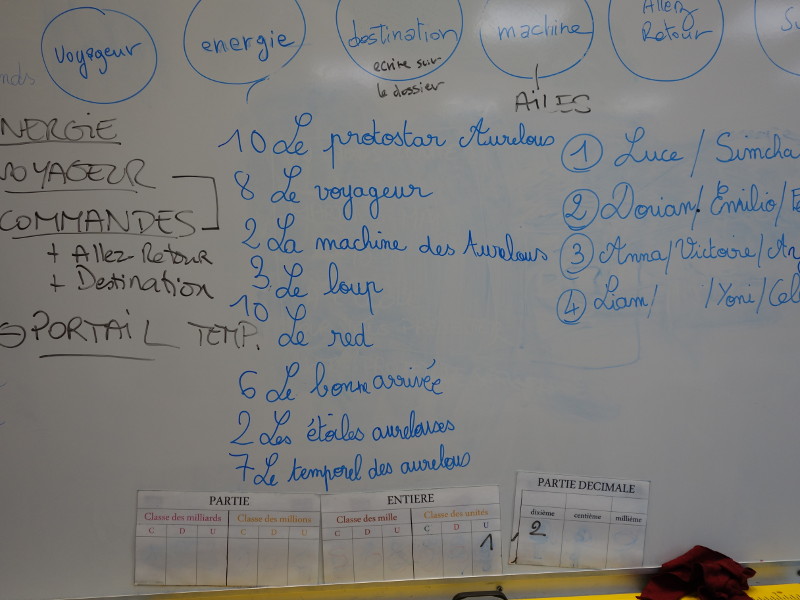 voyageur
energie
destination
machine
Allez
Retour
ecrire sur
le dossier
AilES
NERGiE
OYAGEUR
COMMANDES
+ Allez Retour
+ Destination
PORTAiL TEMP.
10 Le protostar Aurelous
8 Le voyageur
2 La machine des Aurelous
3 Le loup
10 Le red
6 Le bonne arrivée
2 Les étoiles aurelouses
7 Le temporel des aurelous
1 Luce / Simcha
2 Dorian / Emilio /
3 Anna / Victoire / An
4 Liam / / Yoni / Cel
PARTIE ENTIERE PARTIE DECIMALE
Classe des milliards Classe des millions Classe des mille Classe des unités dixième centième millième
C D U C D U C D U C D U
1 , 2